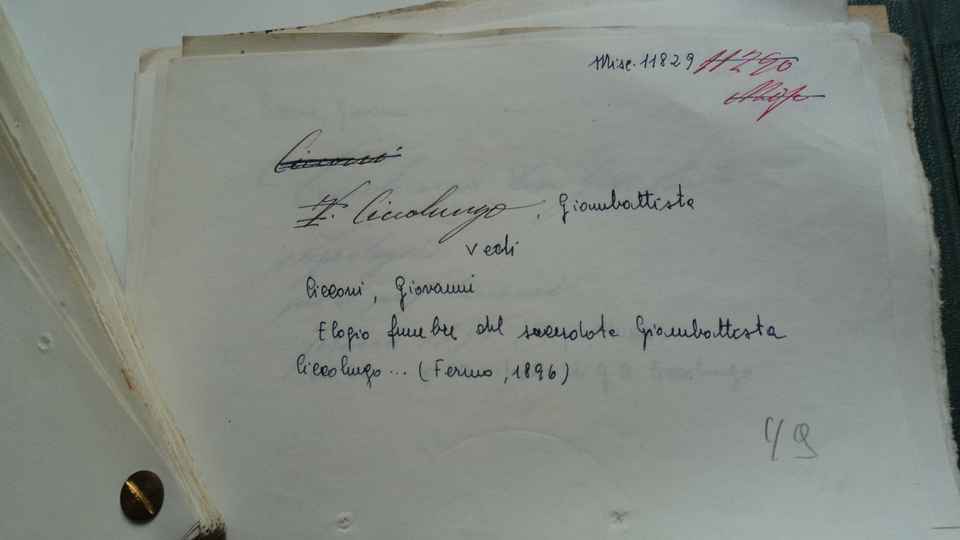 Misc. 11829
Cicconi
Ciccolungo, Giambattista
vedi
Cicconi, Giovanni
Elogio funebre del sacerdote Giambattista
Ciccolungo... (Fermo, 1896)